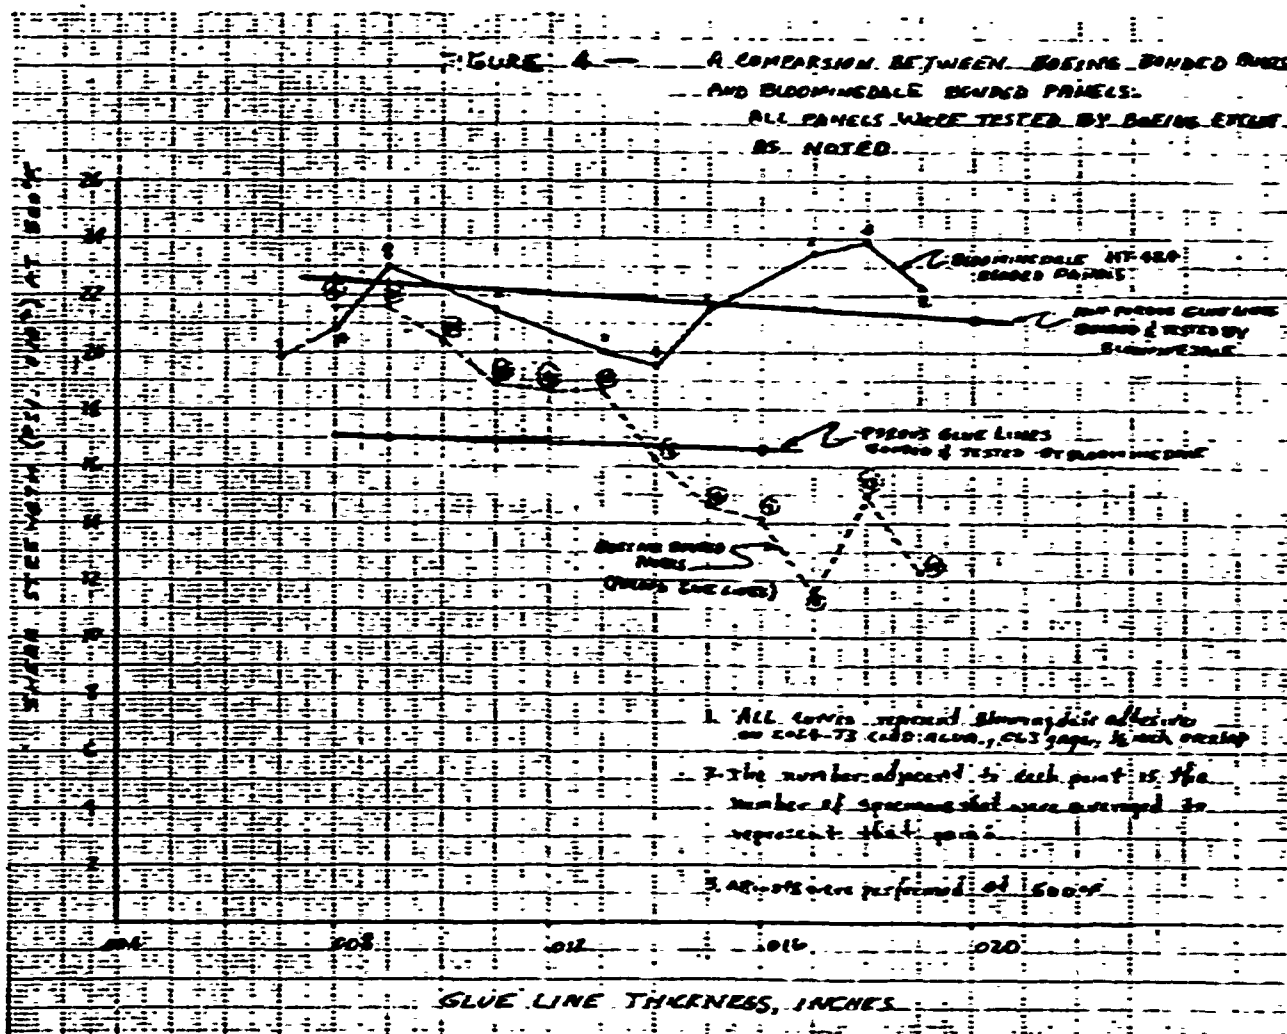 FIGURE 4 — A COMPARSION BETWEEN BOEING BONDED
AND BLOOMINGDALE BONDED PANELS.
ALL PANELS WERE TESTED BY BOEING EXCEPT
AS NOTED
SHEAR STRENGTH (PSI. X10²) AT 500°F
26
24
22
20
18
16
14
12
10
8
6
4
2
BLOOMINGDALE HT-424
BONDED PANELS
NON POROUS GLUE LINES
BONDED & TESTED BY
BLOOMINGDALE
POROUS GLUE LINES
BONDED & TESTED BY BLOOMINGDALE
BOEING BONDED
PANELS
(POROUS GLUE LINES)
1. ALL curves represent Bloomingdale adhesive
on 2024-T3 CLAD ALUM., .063 gage, ½ inch overlap
2. The number adjacent to each point is the
number of specimens that were averaged to
represent that point.
3. were performed at 500°F
.004 .008 .012 .016 .020
GLUE LINE THICKNESS, INCHES